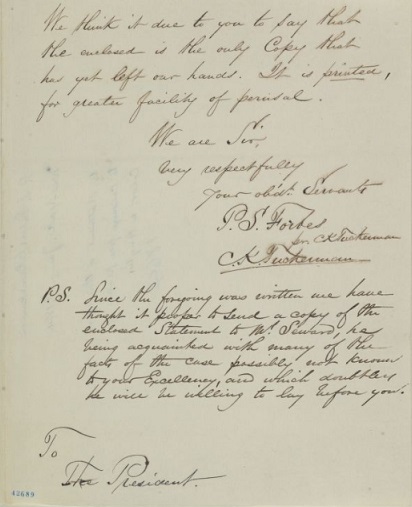 We think it due to you to say that
the enclosed is the only Copy that
has yet left our hands. It is printed,
for greater facility of perusal.
We are Sir,
very respectfully
Your obdt. Servants
P. S. Forbes
pr. CKTuckerman
C. K Tuckerman
P.S. Since the forgoing was written we have
thought it proper to send a copy of the
enclosed Statement to Mr. Seward, he
being acquainted with many of the
facts of the case possibly not known
to your Excellency, and which doubtless
he will be willing to lay before you.
To
The President.
42689